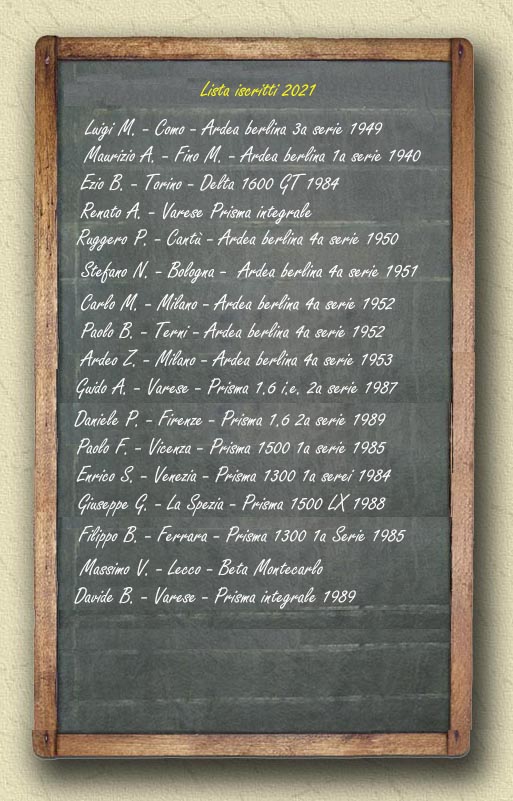 Lista iscritti 2021
Luigi M. - Como - Ardea berlina 3a serie 1949
Maurizio A. - Fino M. - Ardea berlina 1a serie 1940
Ezio B. - Torino - Delta 1600 GT 1984
Renato A. - Varese Prisma integrale
Ruggero P. - Cantù - Ardea berlina 4a serie 1950
Stefano N. - Bologna - Ardea berlina 4a serie 1951
Carlo M. - Milano - Ardea berlina 4a serie 1952
Paolo B. - Terni - Ardea berlina 4a serie 1952
Ardeo Z. - Milano - Ardea berlina 4a serie 1953
Guido A. - Varese - Prisma 1.6 i.e. 2a serie 1987
Daniele P. - Firenze - Prisma 1.6 2a serie 1989
Paolo F. - Vicenza - Prisma 1500 1a serie 1985
Enrico S. - Venezia - Prisma 1300 1a serei 1984
Giuseppe G. - La Spezia - Prisma 1500 LX 1988
Filippo B. - Ferrara - Prisma 1300 1a Serie 1985
Massimo V. - Lecco - Beta Montecarlo
Davide B. - Varese - Prisma integrale 1989